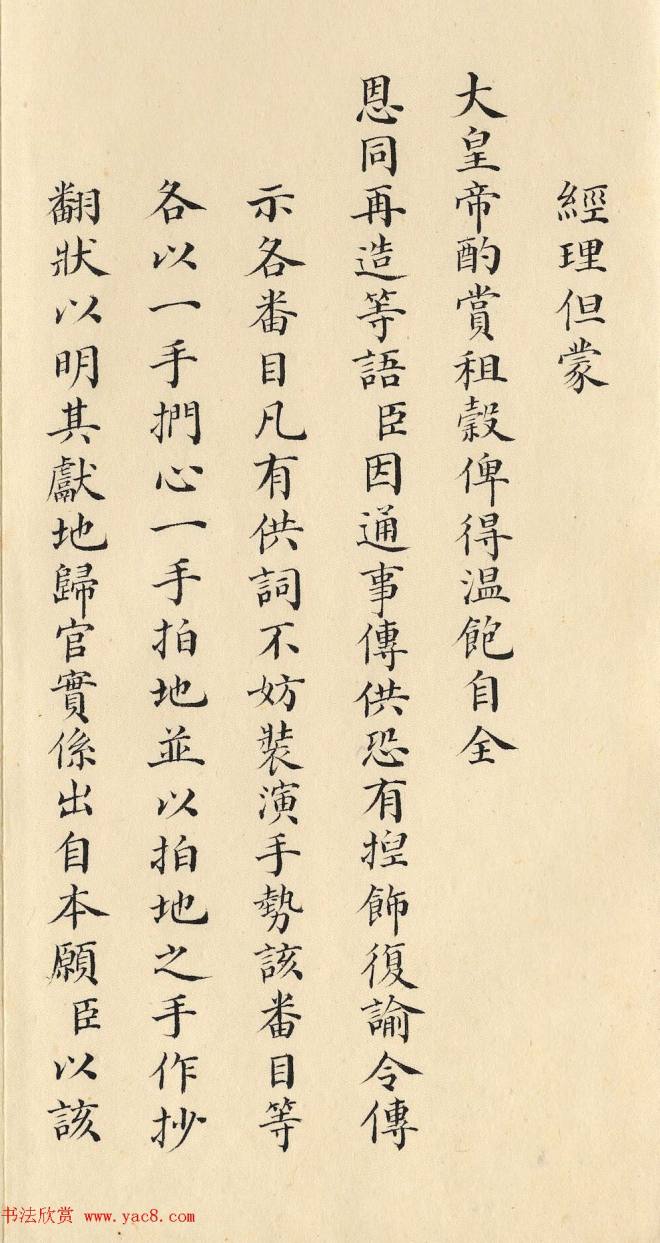 經理但蒙
大皇帝酌賞租穀俾得温飽自全
恩同再造等語臣因通事傳供恐有揑飾復諭令傳
示各番目凡有供詞不妨裝演手勢該番目等
各以一手捫心一手拍地並以拍地之手作抄
翻狀以明其獻地歸官實係出自本願臣以該
书法欣赏 www.yac8.com